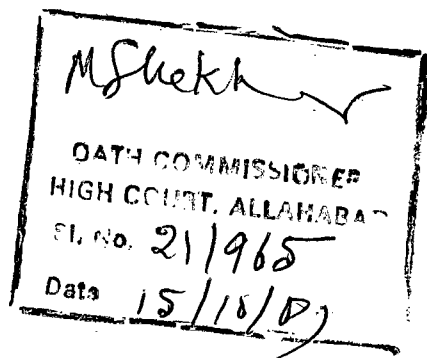 OATH COMMISSIONER
HIGH COURT, ALLAHABAD
Sl. No. 21/965
Date 15/10/